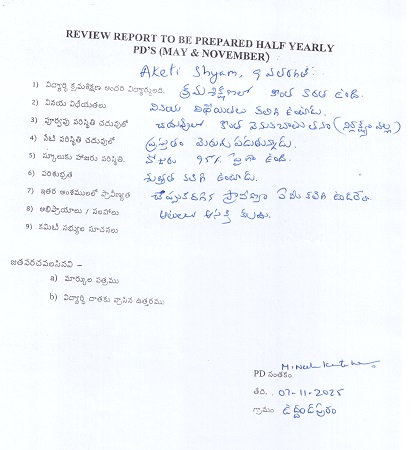 REVIEW REPORT TO BE PREPARED HALF YEARLY
PD'S (MAY & NOVEMBER)
Aketi Shyam, 9 వ తరగతి
1) విద్యార్థి క్రమశిక్షణ అందరి విద్యార్థులది. క్రమశిక్షణలో కొంత కఠత ఉంది.
2) వినయ విధేయతలు వినయ విధేయతలు కలిగి ఉంటాడు.
3) పూర్వపు పరిస్థితి చదువులో చదువులో కొంత వెనుకబాటుతనం
4) నేటి పరిస్థితి చదువులో ప్రస్తుతం మెరుగు పడుతున్నాడు.
5) స్కూలుకు హాజరు పరిస్థితి. హాజరు 95% పైగా ఉంది.
6) పరిశుభ్రత శుభ్రత కలిగి ఉంటాడు.
7) ఇతర అంశములలో ప్రావీణ్యత చెప్పుకదగిన ప్రావీణ్యం ఏమీ కలిగి ఉండలేదు.
8) అభిప్రాయాలు / సలహాలు ఆటలు ఆసక్తి
9) కమిటీ సభ్యుల సూచనలు
జతపరచవలసినవి –
a) మార్కుల పత్రము
b) విద్యార్థి దాతకు వ్రాసిన ఉత్తరము
PD సంతకం
తేది. 07-11-2025
గ్రామం